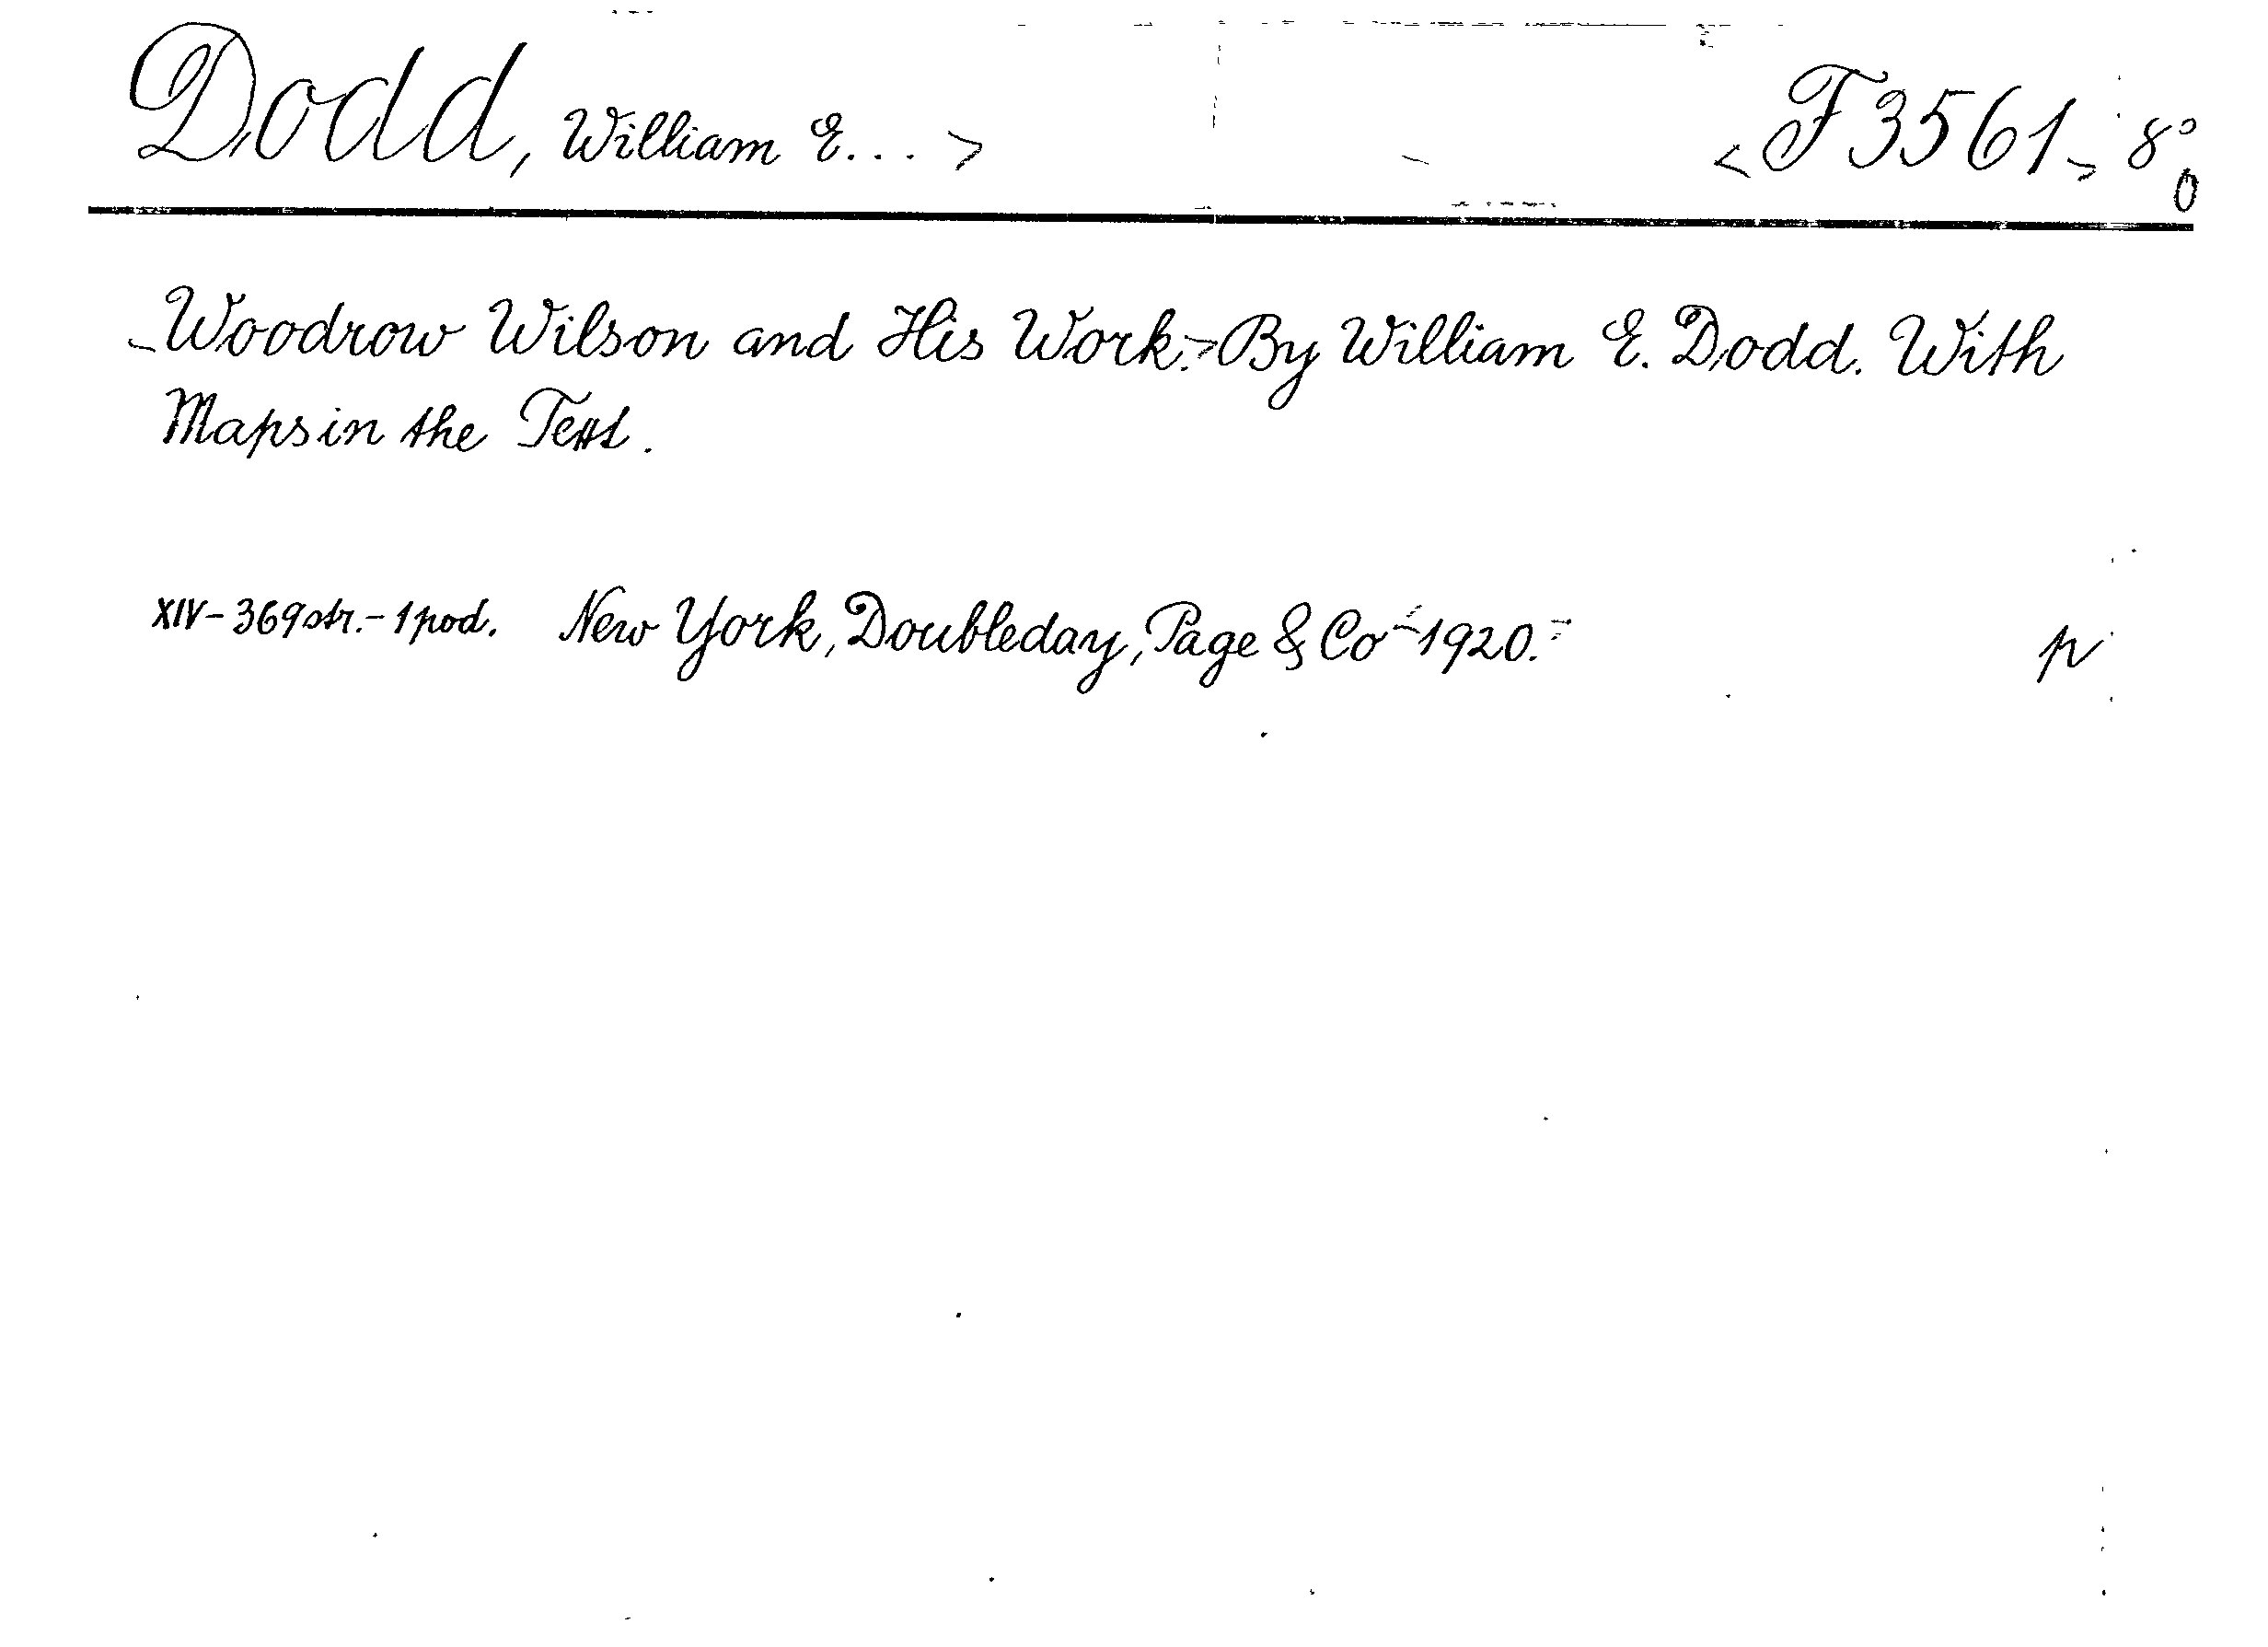 Dodd, William E... > <F3561> 8°
0
Woodrow Wilson and His Work.> By William E. Dodd. With
Maps in the Text.
XIV-369str.-1pod. New York, Doubleday, Page & Co 1920.
p